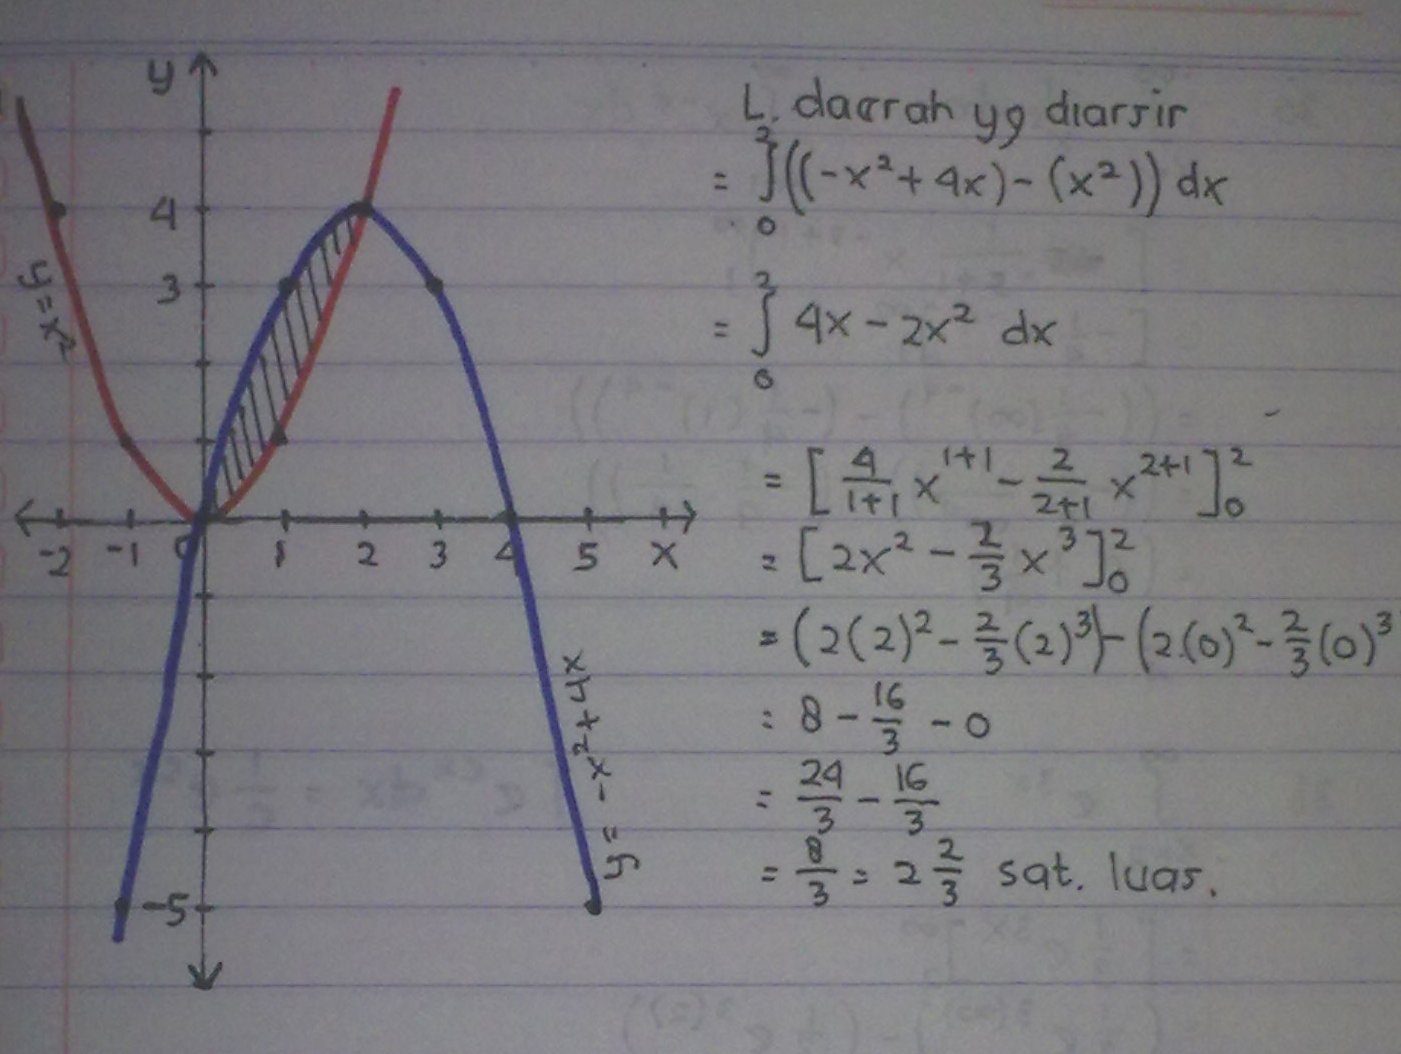 y
4
3
y = x²
-2 -1 0 1 2 3 4 5 x
-5
y = -x² + 4x
L. daerah yg diarsir
= ∫₀² ((-x² + 4x) - (x²)) dx
= ∫₀² 4x - 2x² dx
= [4/(1+1) x¹⁺¹ - 2/(2+1) x²⁺¹]₀²
= [2x² - 2/3 x³]₀²
= (2(2)² - 2/3 (2)³) - (2.(0)² - 2/3 (0)³
= 8 - 16/3 - 0
= 24/3 - 16/3
= 8/3 = 2 2/3 sat. luas.